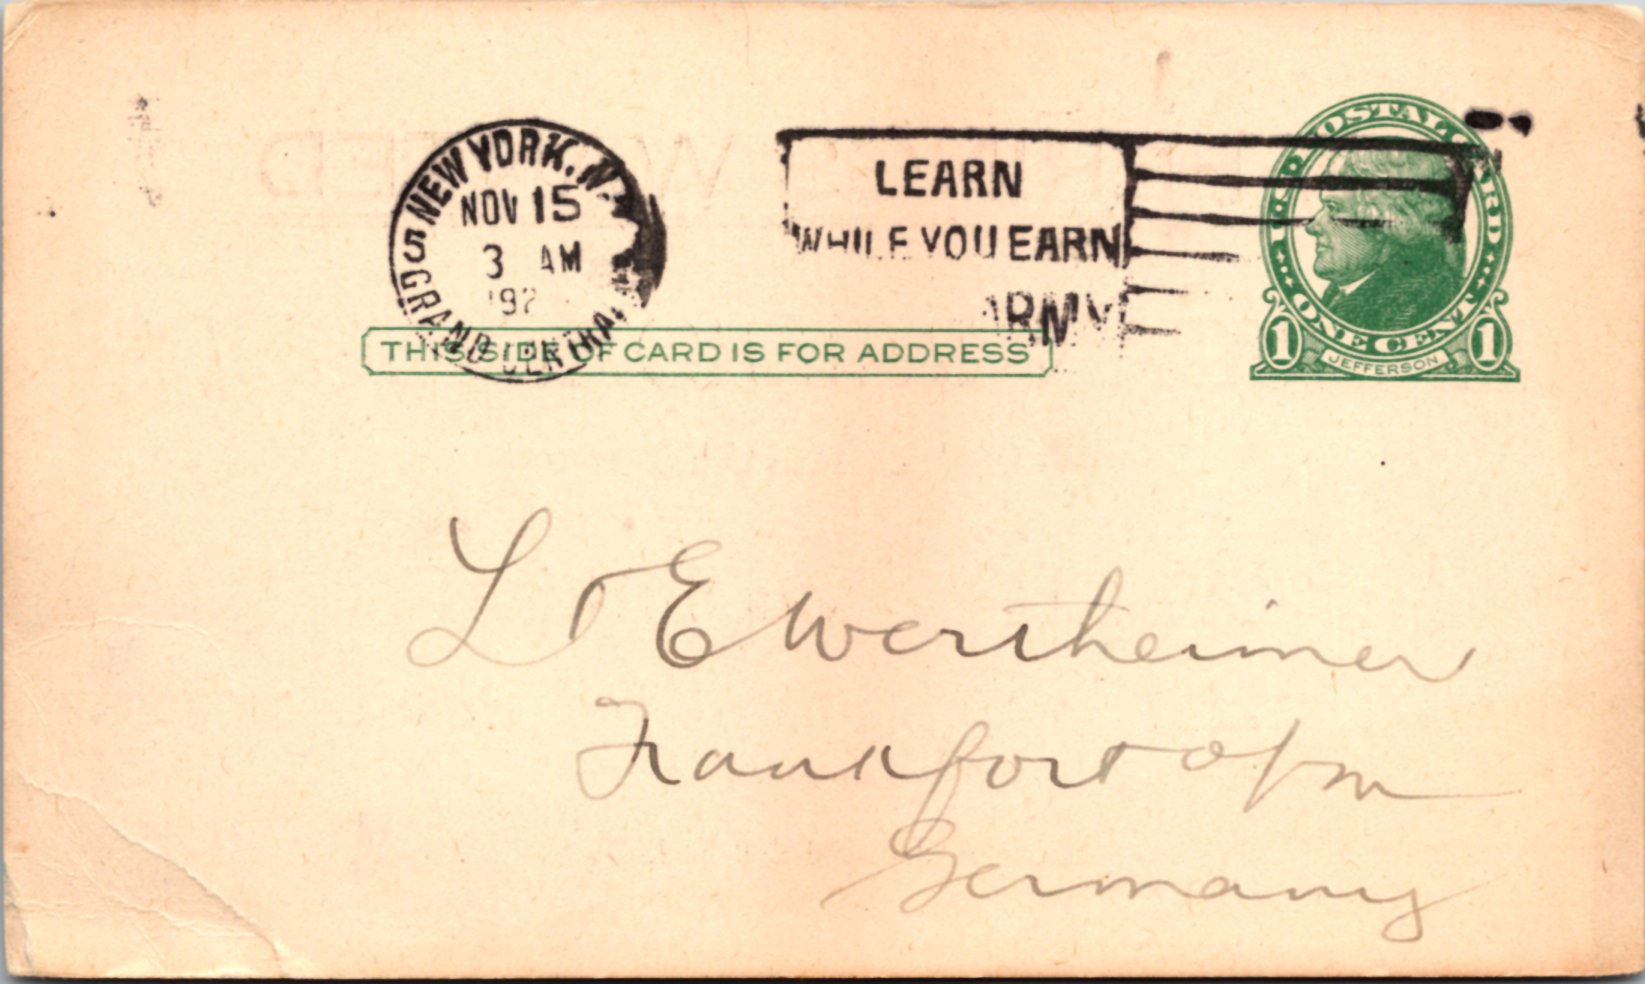 NEW YORK, N.Y.
NOV 15
3 AM
192
GRAND CENTRAL
LEARN
WHILE YOU EARN
ARMY
U.S. POSTAL CARD
ONE CENT
1 JEFFERSON 1
THIS SIDE OF CARD IS FOR ADDRESS
L & E Wertheimer
Frankfort o/m
Germany